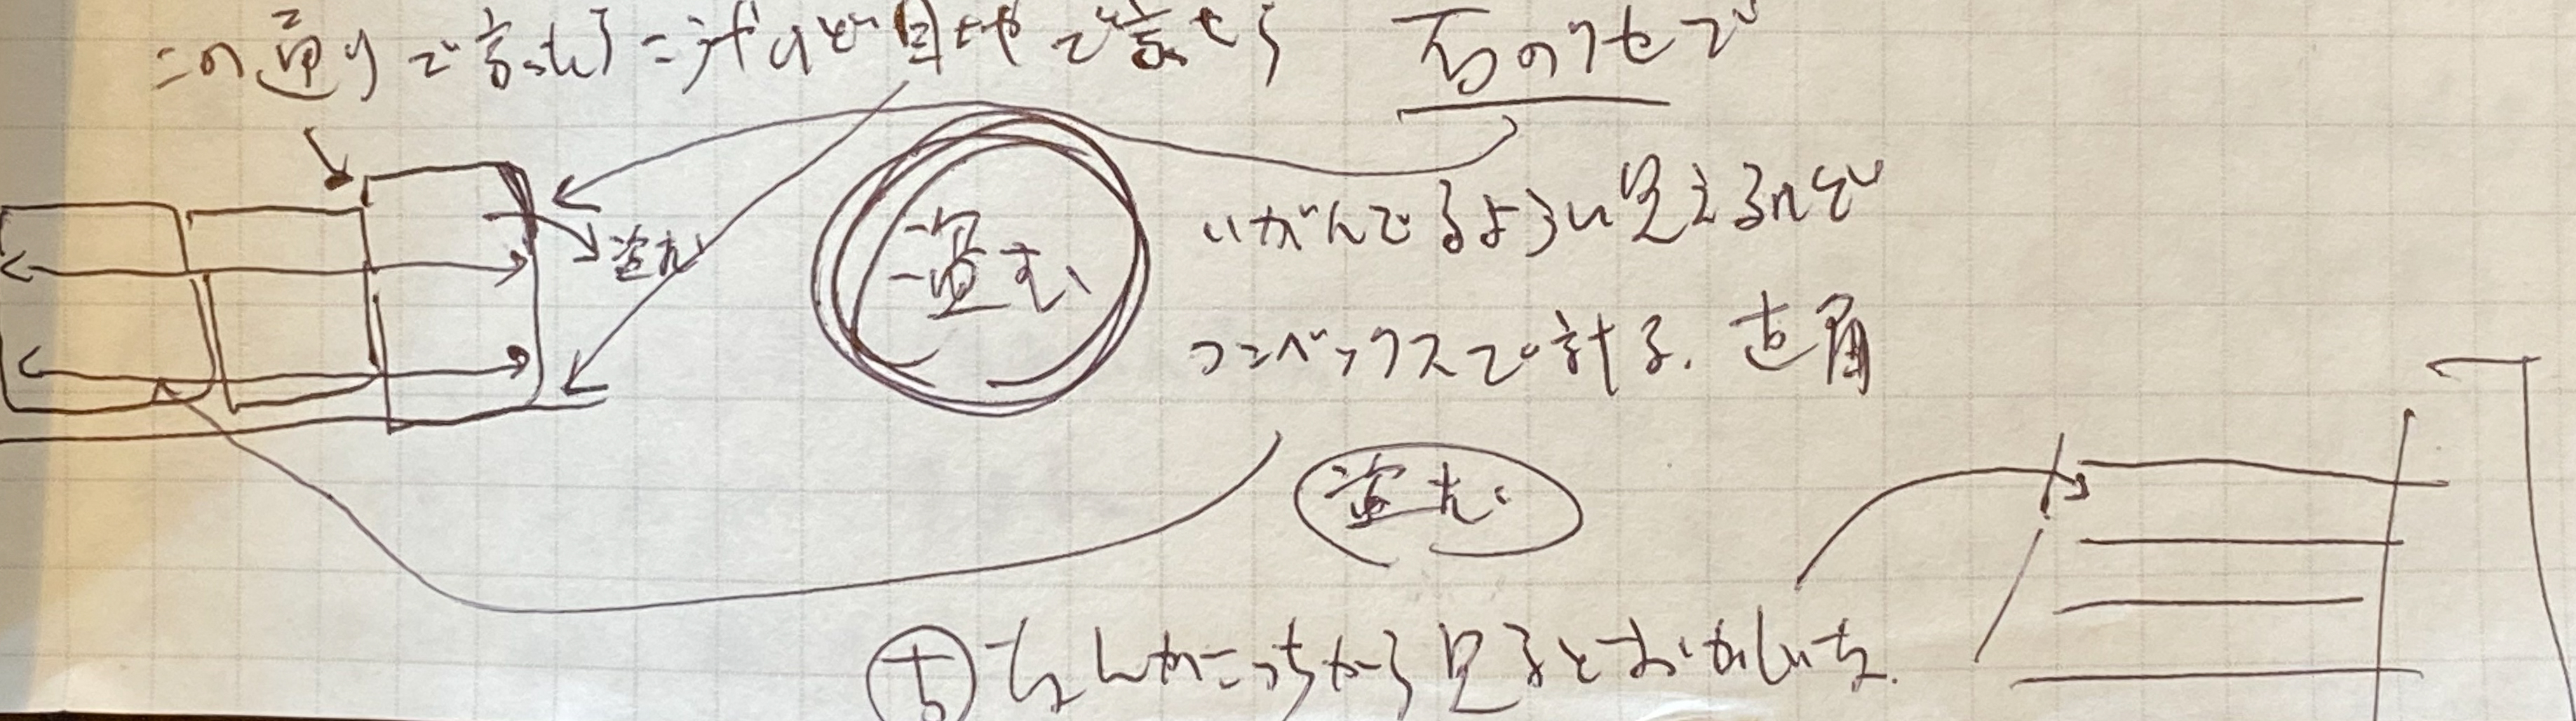 この通りで言ったら これだけど 目地で言ったら 石のクセで
盗む
盗む
いがんでるように見えるけど
コンベックスで計る. 直角
盗む
右 なんかこっちから見るとおかしいな.